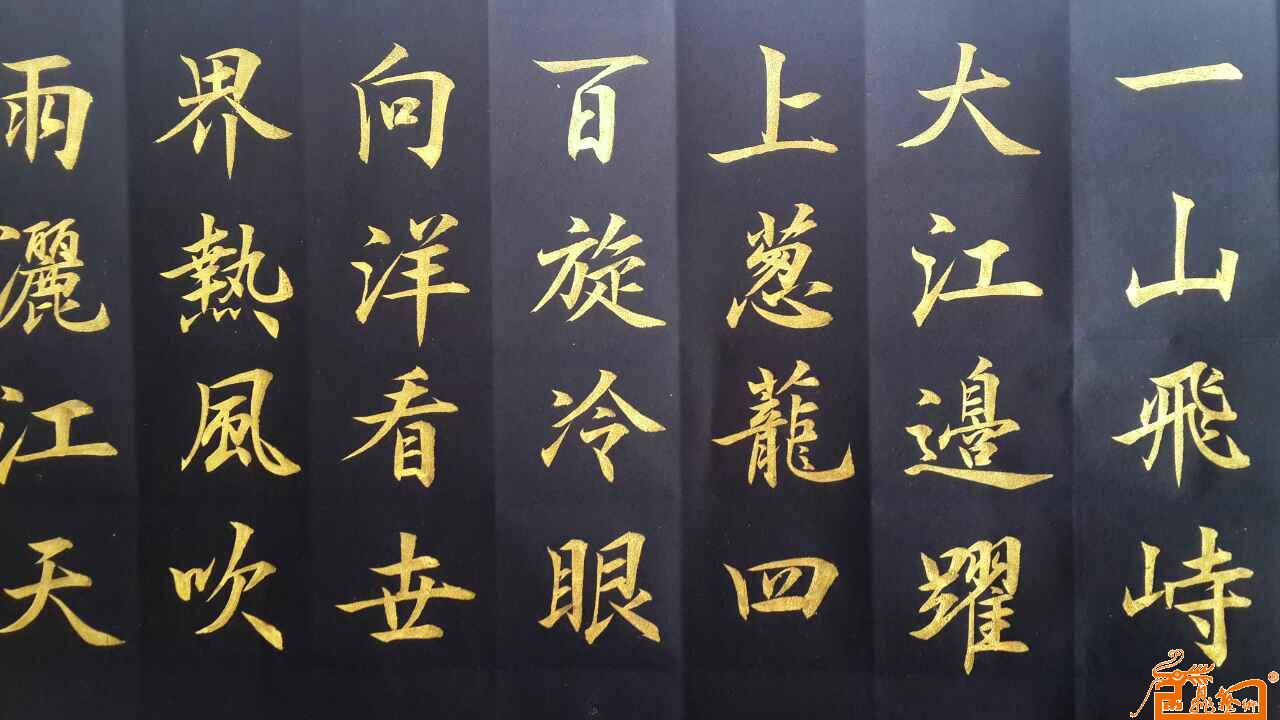 一山飛峙
大江邊躍
上葱蘢四
百旋冷眼
向洋看世
界熱風吹
雨灑江天